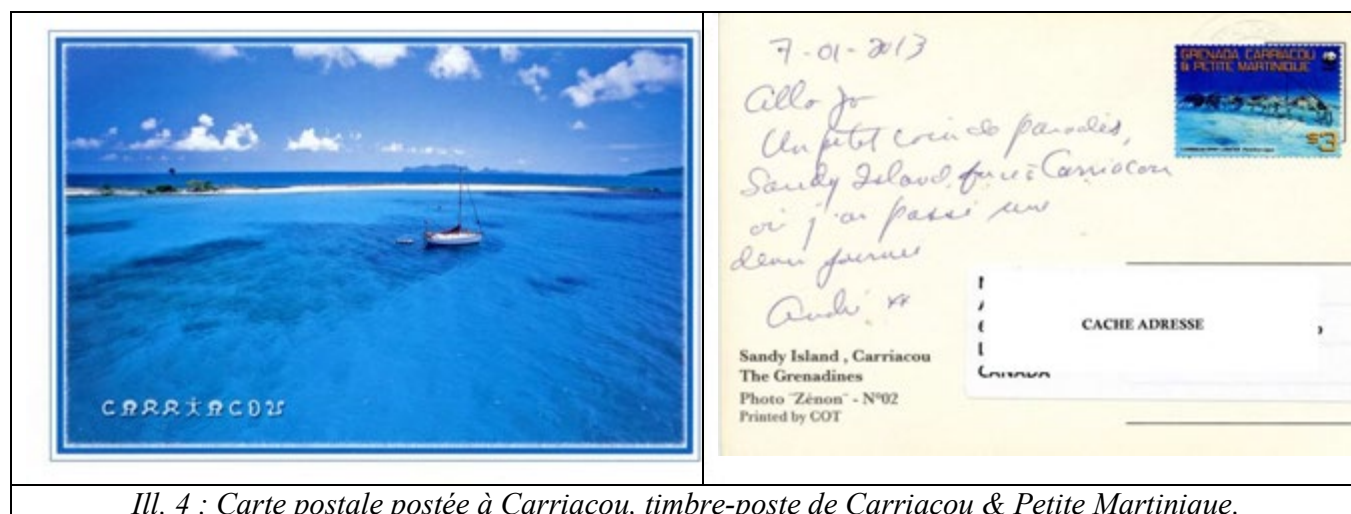 CARRIACOU
7-01-2013
Allo Jo
Un petit coin de paradis,
Sandy Island, Carriacou
où j'ai passé une
demi journée
André xx
GRENADA CARRIACOU
& PETITE MARTINIQUE
$3
CACHE ADRESSE
CANADA
Sandy Island , Carriacou
The Grenadines
Photo "Zénon" - N°02
Printed by COT
Ill. 4 : Carte postale postée à Carriacou, timbre-poste de Carriacou & Petite Martinique.